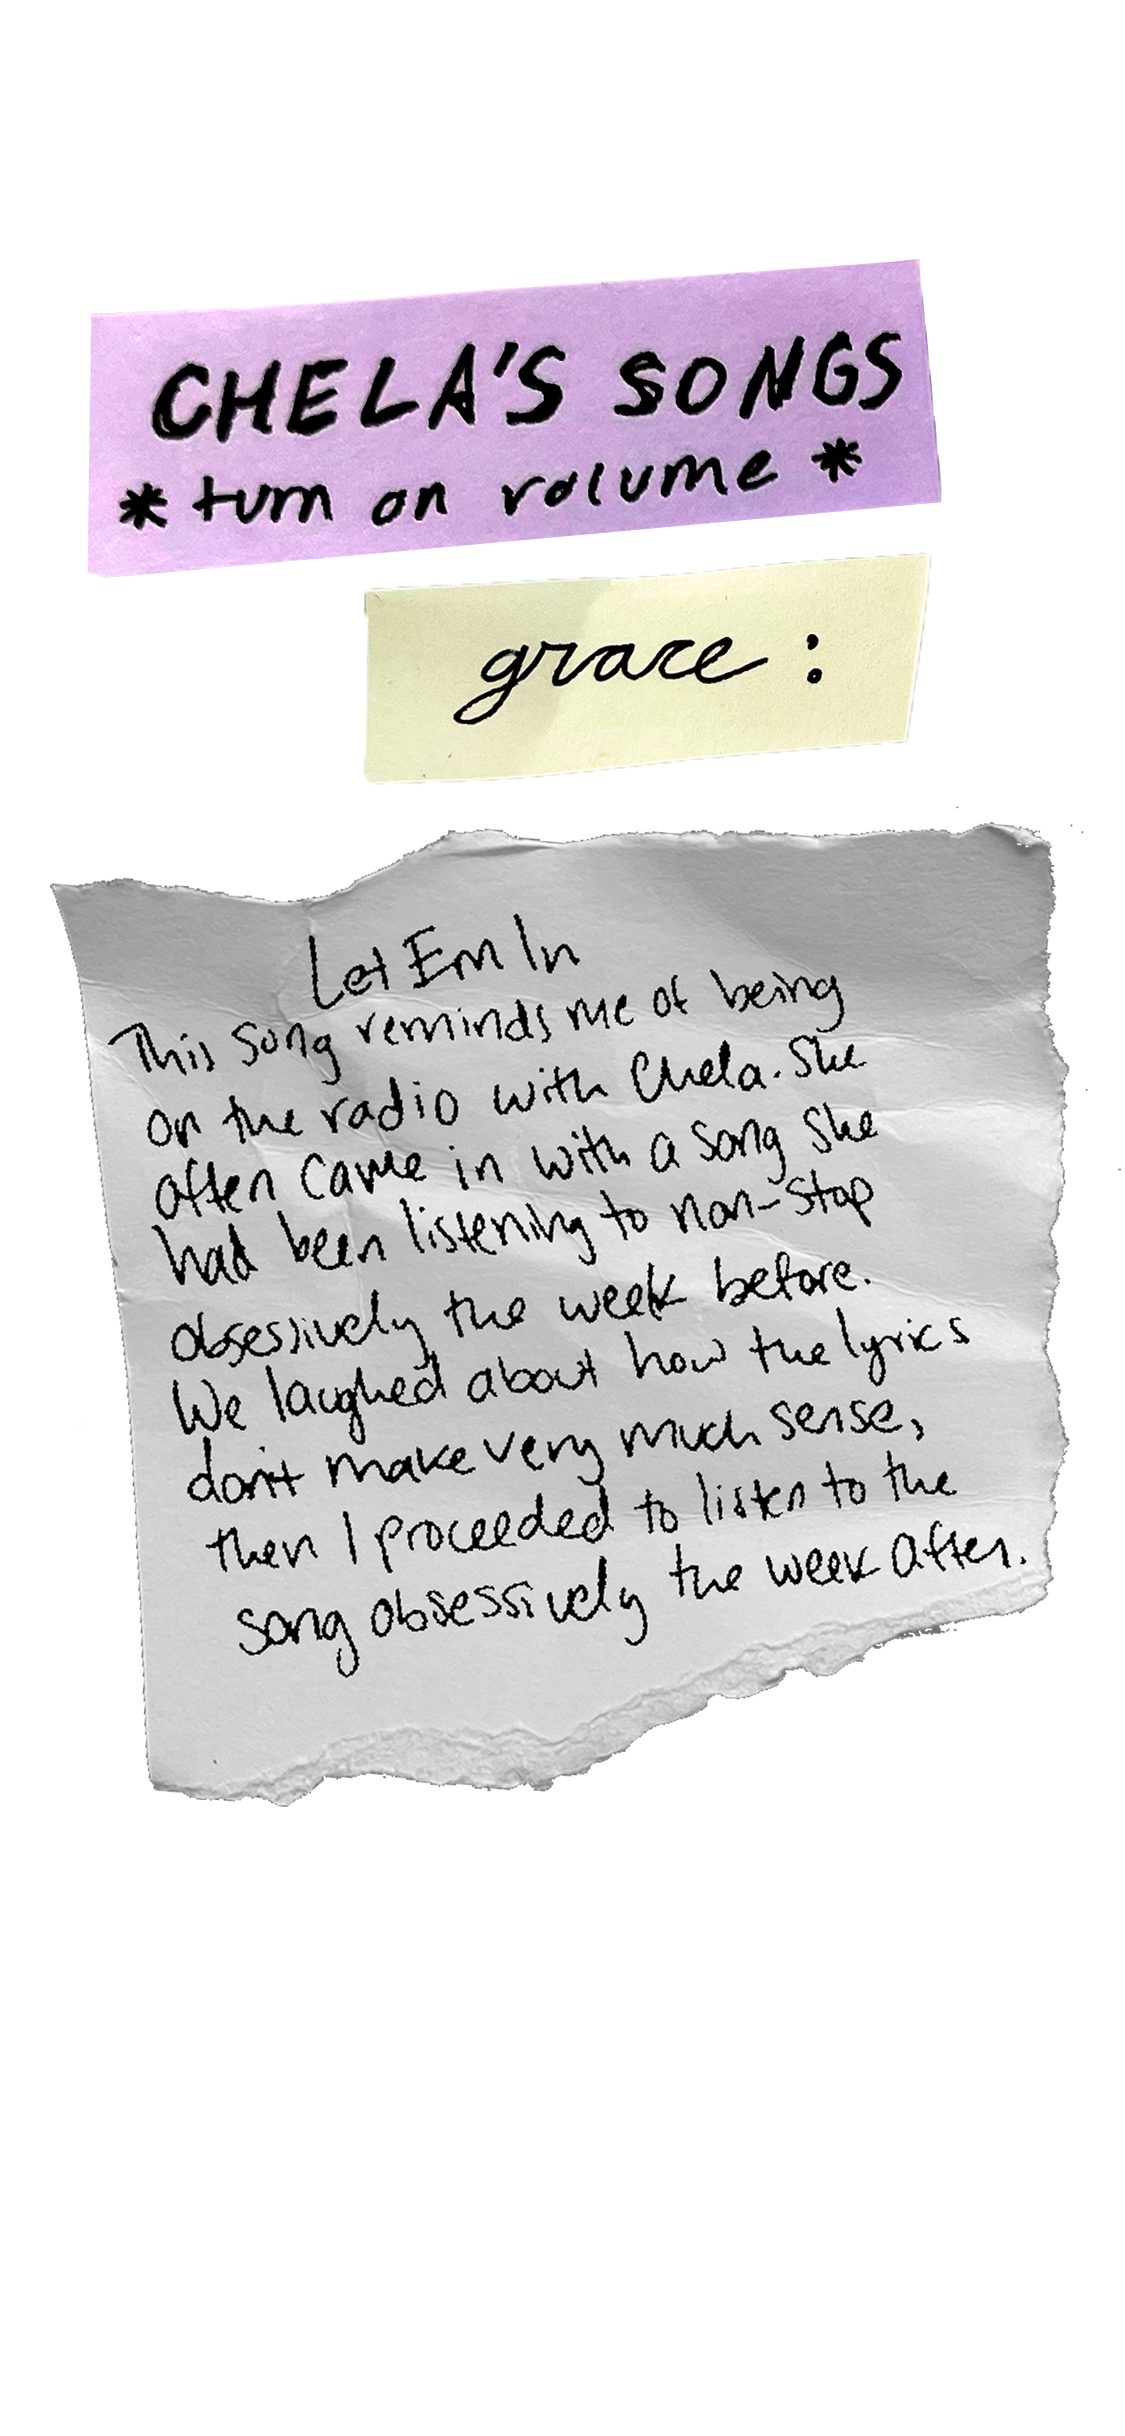 CHELA'S SONGS
* turn on volume *
grace :
Let Em In
This song reminds me of being
on the radio with Chela. She
often came in with a song she
had been listening to non-stop
obsessively the week before.
We laughed about how the lyrics
don't make very much sense,
then I proceeded to listen to the
song obsessively the week after.